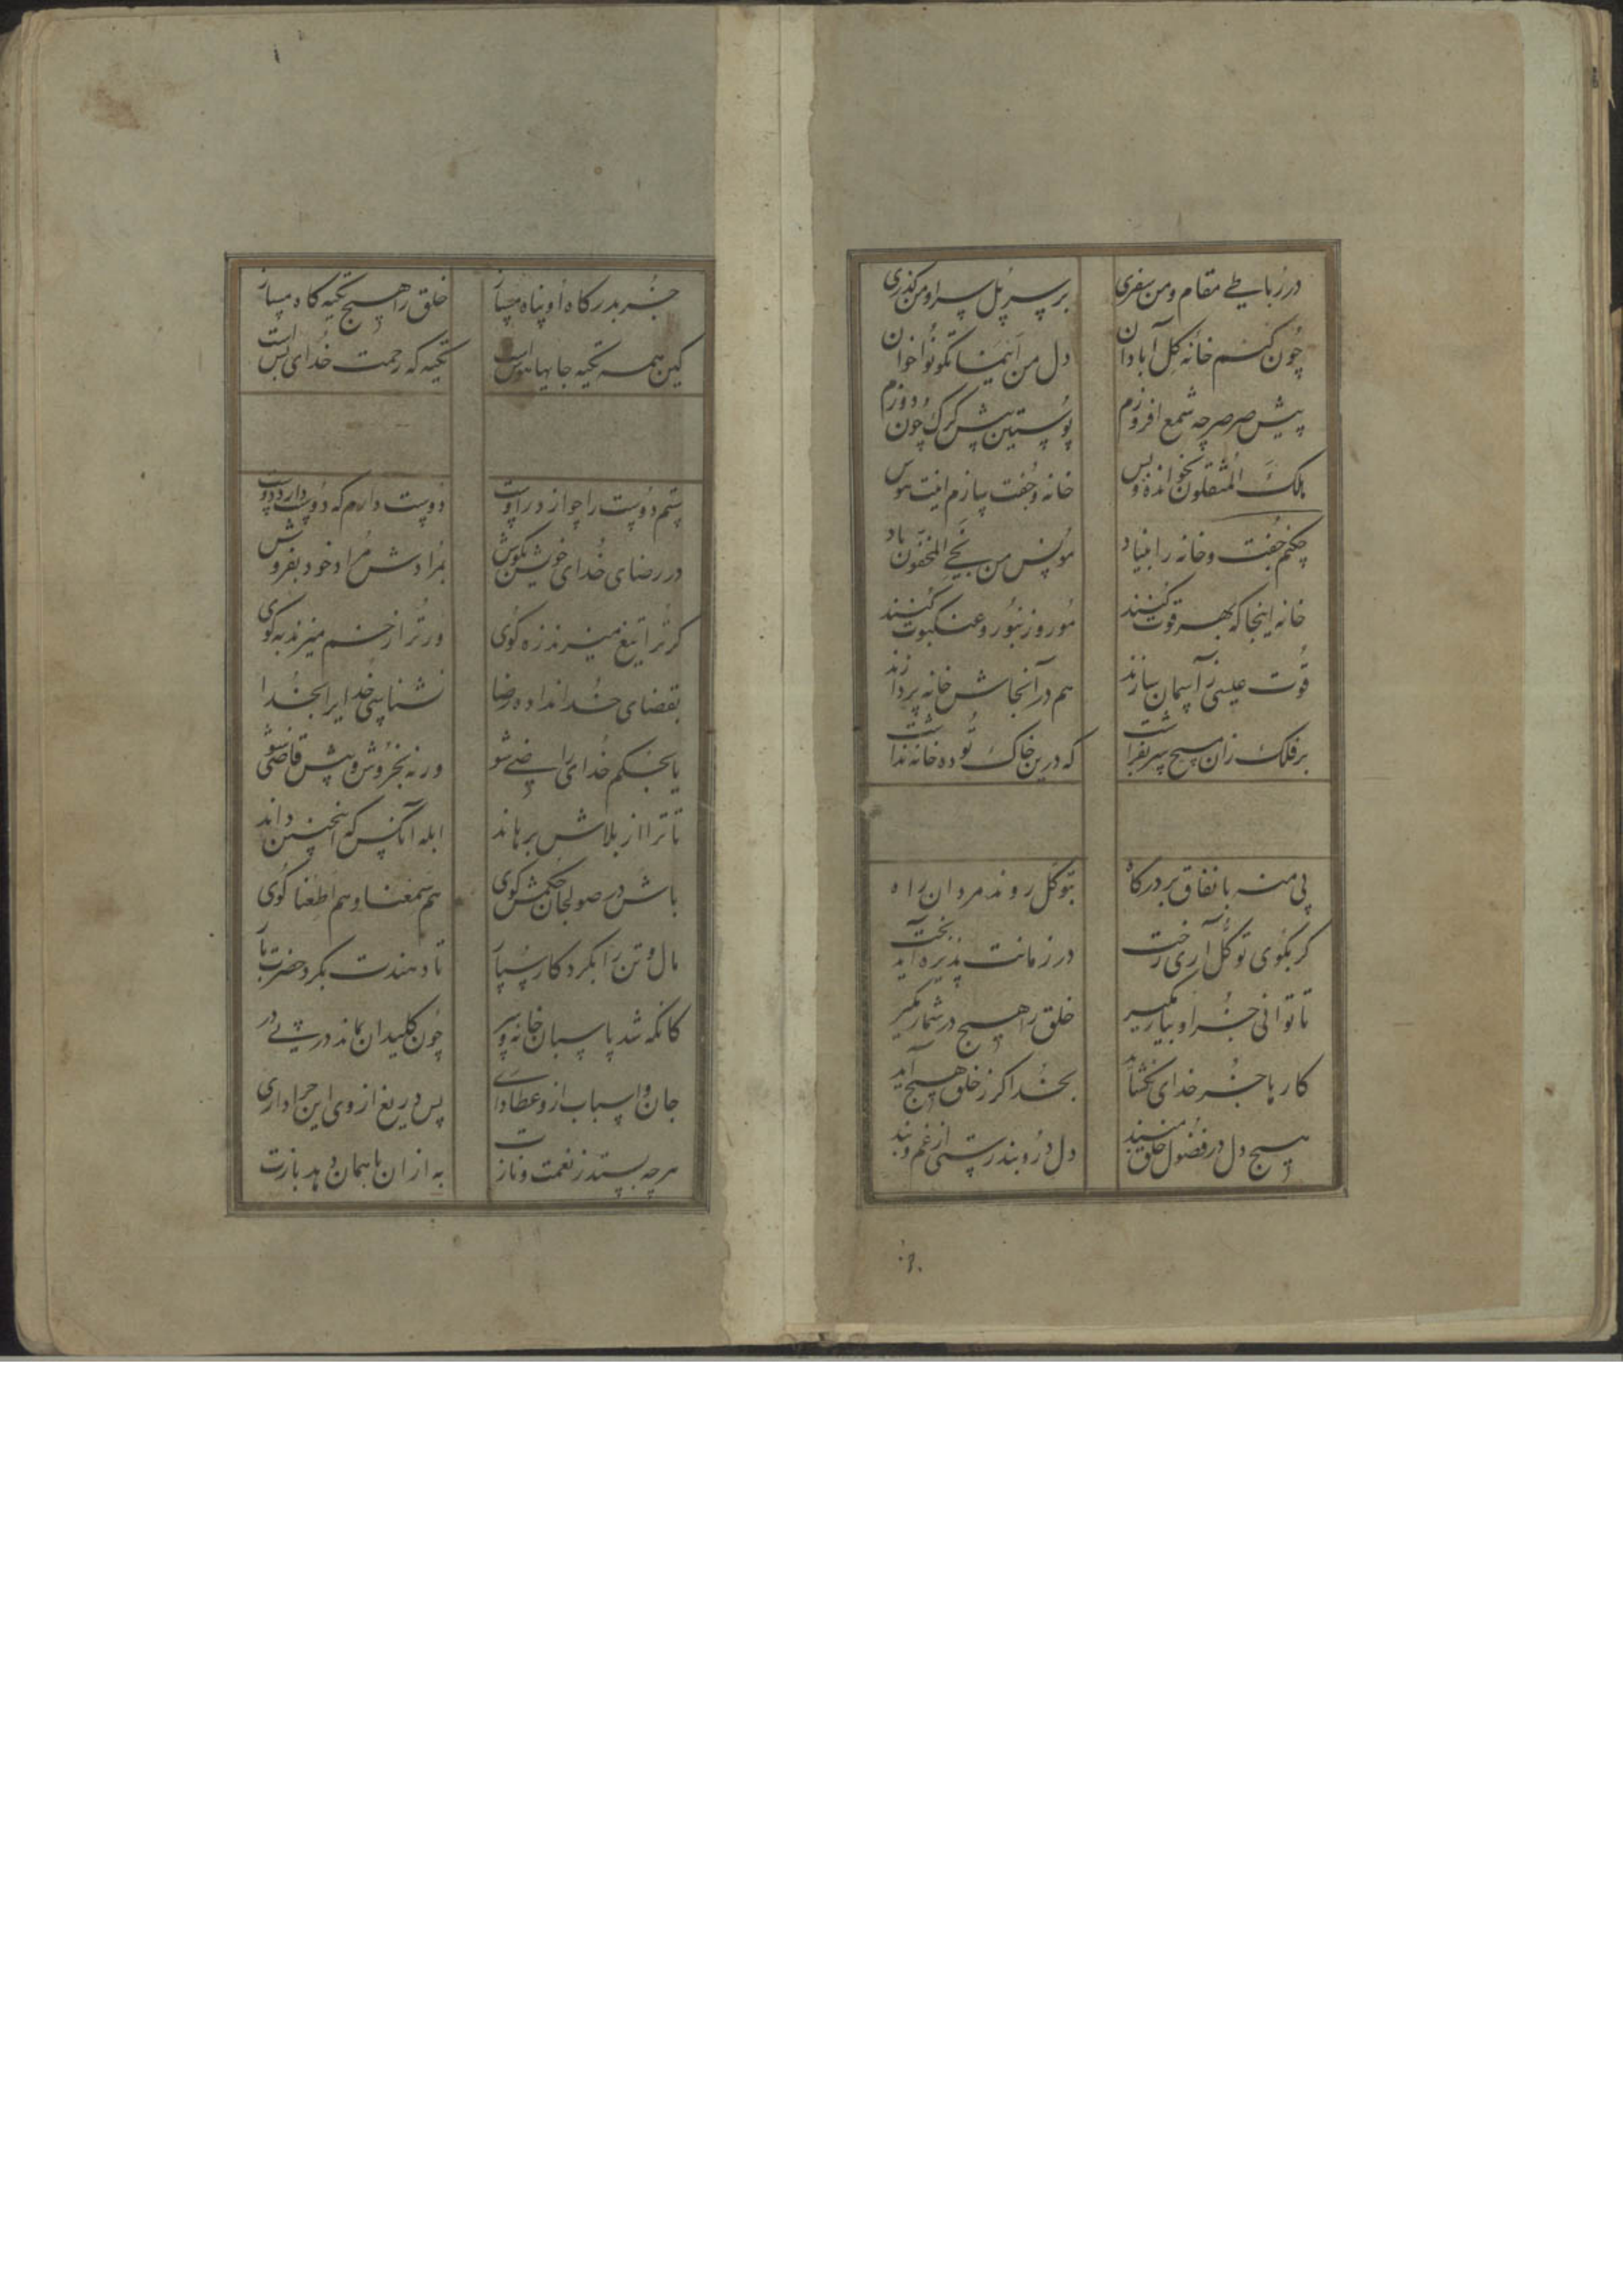 در رباطی مقام و من سفری بر سر پل سرا و من گذری
چون کنم خانه گل آبادان دل من اینما تکونوا خوان
پیش صرصر چه شمع افروزم پوستین پیش گرگ چون دوزم
ملک المثقلون نخوانده و بس خانه و جفت سازم اینت هوس
چکنم جفت و خانه را بنیاد مونس من نجی المخفون باد
خانه اینجا که بهر قوت کنند مور و زنبور و عنکبوت کنند
قوت عیسی ز آسمان سازند هم در آنجاش خانه پردازند
بر فلک زان مسیح سر بفراشت که درین خاک توده خانه نداشت
پی منه با نفاق بر درگاه بتوکل روند مردان راه
گر بکوی توکل آری رخت در زمانت پذیره آید بخت
تا توانی جز او بیار مگیر خلق را هیچ در شمار مگیر
کارها جز خدای نگشاید بخدا گر ز خلق هیچ آید
هیچ دل در فضول خلق مبند دل درو بند رستی از غم و بند
جز بدرگاه او پناه مساز خلق را هیچ تکیه گاه مساز
کین همه تکیه جایها هوس است تکیه گه رحمت خدای بس است
ستم دوست را چو از در اوست دوست دارم که دوست دارد دوست
در رضای خدای خویش بکوش بمرادش مراد خود بفروش
گر ترا تیغ میزند زه گوی ور ترا زخم میزند به گوی
بقضای خدا نداده رضا نشناسی خدایرا بخدا
یا بحکم خدای راضی شو ورنه بخروش و پیش قاضی شو
تا ترا از بلاش برهاند ابله آنکس که اینچنین داند
باش در صولجان حکمش گوی هم سمعنا و هم اطعنا گوی
مال و تن را بگرد کار سپار تا دهندت بگرد حضرت بار
کانکه شد پاسبان خانه و سر چون کلیدان بماند در پی در
جان و اسباب ازو عطا داری پس دریغ از وی این چرا داری
هرچه بستد ز نعمت و نازت به از آن یا همان دهد بازت